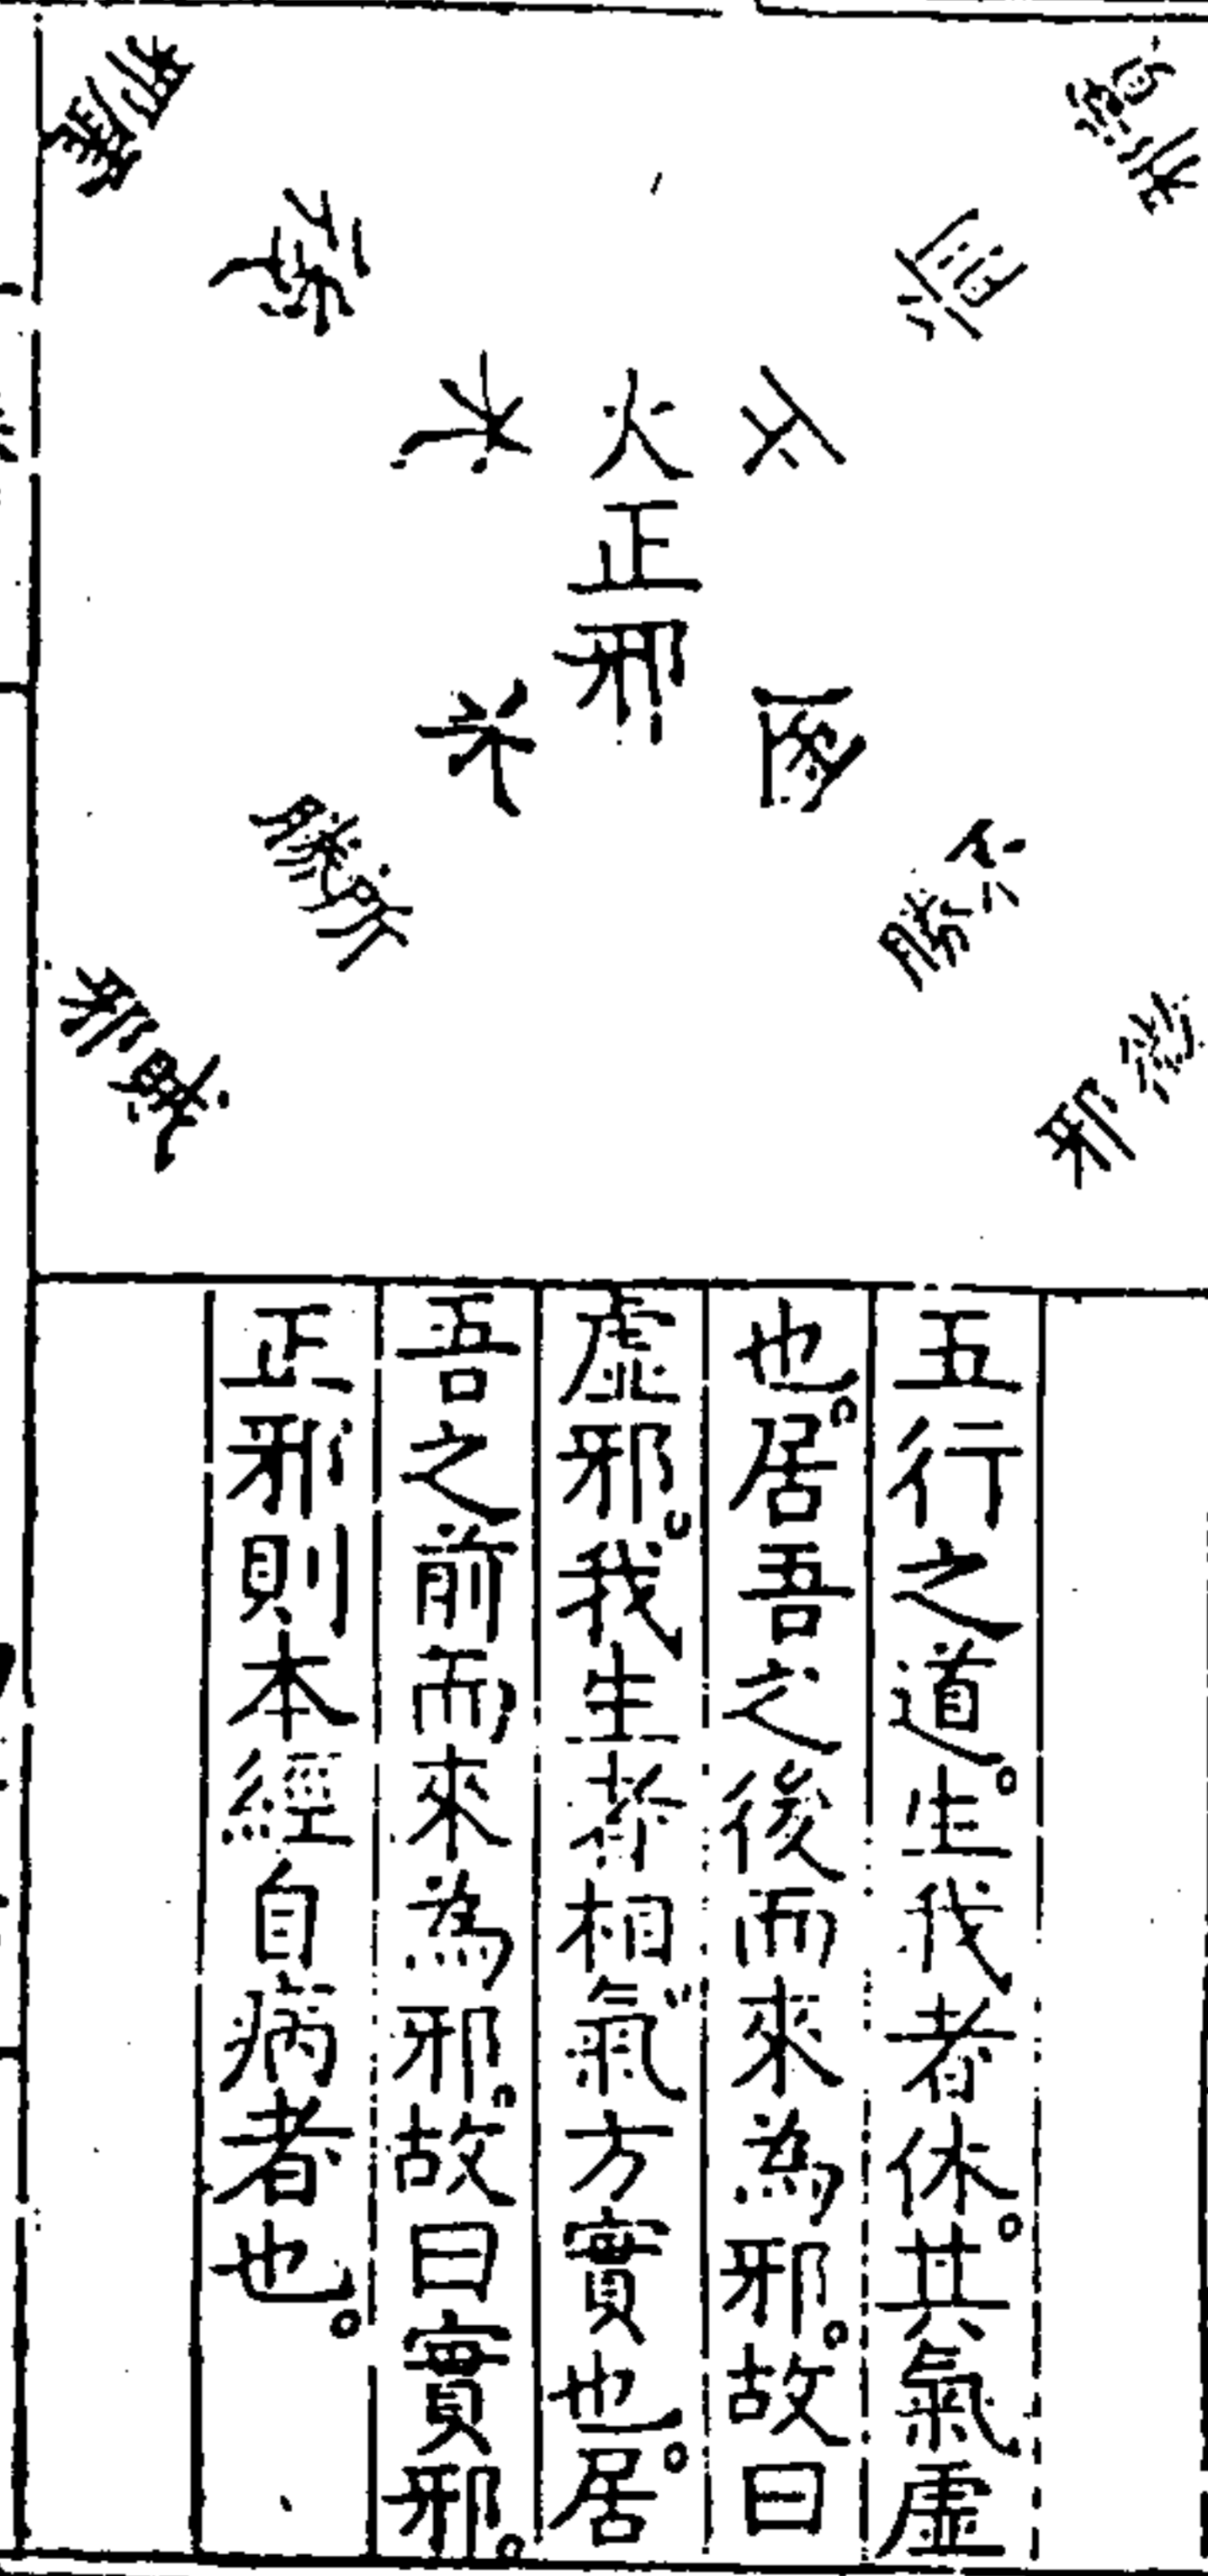 實邪
前
土
虛邪
後
木
火
正邪
水
所勝
賊邪
金
不勝
微邪
五行之道。生我者休。其氣虛
也。居吾之後而來為邪。故曰
虛邪。我生者相氣方實也。居
吾之前而來為邪。故曰實邪。
正邪則本經自病者也。